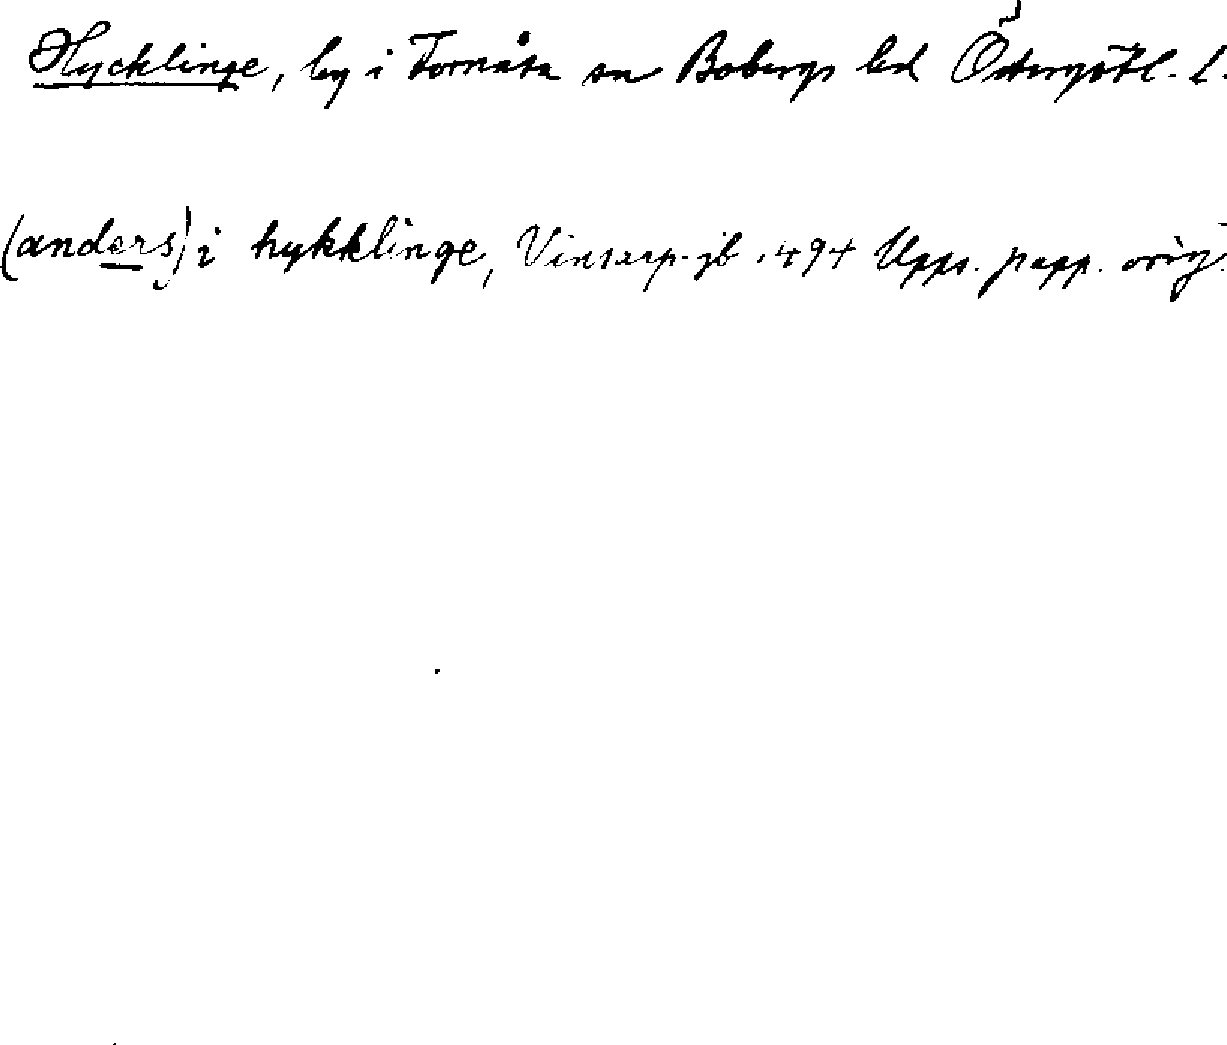 Hycklinge, by i Fornåsa sn Bobergs hd Östergötl. l.
(anders) i hykklinge, Vinserp. jb 1494 Upps. papp. orig.